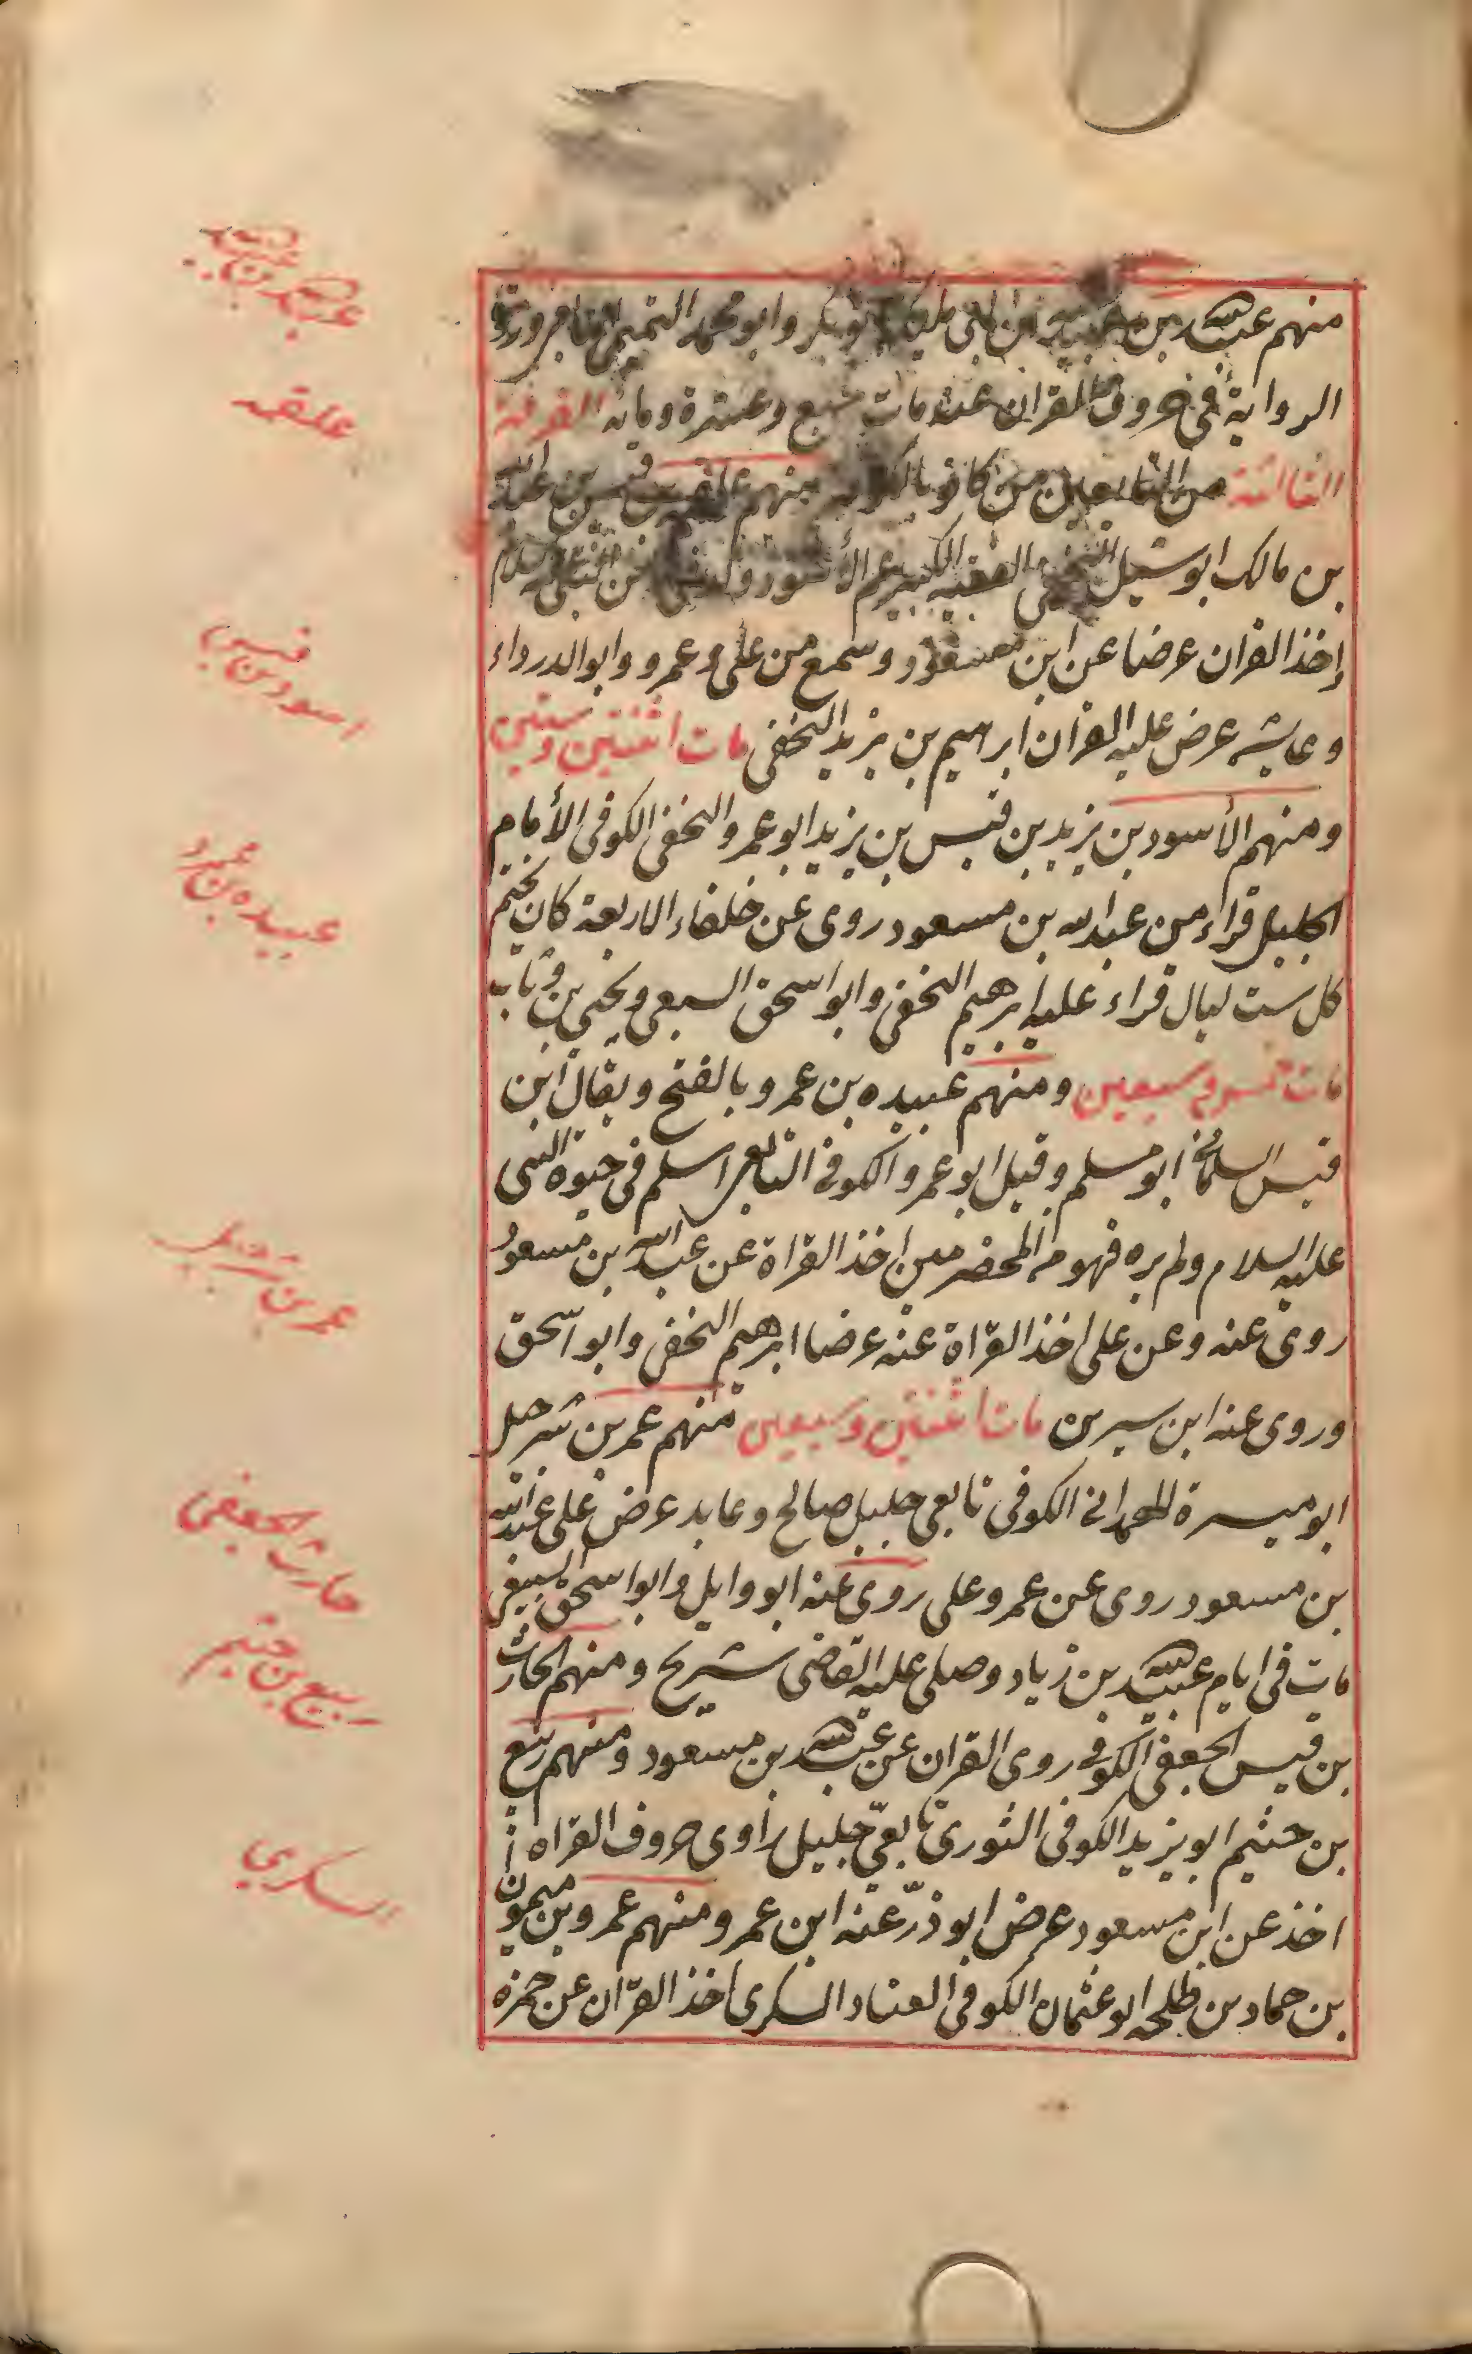 منهم عبد الله بن وابو محمد التميمى
الرواية فى حروف القران عنه مات سبع وعشرة ومائة الفرقة
الثالثة من التابعين من كانو بالكوفة منهم علقمة بن قيس بن عبد الله
بن مالك ابو شبل النخعى الفقيه الكبير عم الأسود
اخذ القران عرضا عن ابن مسعود وسمع من على وعمرو وابو الدرداء
وعايشه عرض عليه القران ابراهيم بن يزيد النخعى مات اثنتين وستين
ومنهم الأسود بن يزيد بن قيس بن يزيد ابو عمرو النخعى الكوفى الأمام
الجليل قراء من عبد الله بن مسعود روى عن خلفاء الاربعة كان يختم
كل ست ليال قراء عليه ابرهيم النخعى وابو اسحق السبعى ويحيى بن وثاب
مات خمس وسبعين ومنهم عبيده بن عمرو بالفتح ويقال ابن
قيس السلمانى ابو مسلم وقيل ابو عمرو الكوفى التابعى اسلم فى حيوة النبى
عليه السلام ولم يره فهو من المخضرمين اخذ القراة عن عبد الله بن مسعود
روى عنه وعن على اخذ القراة عنه عرضا ابرهيم النخعى وابو اسحق
وروى عنه ابن سيرين مات اثنتين وسبعين منهم عمر بن شرحيل
ابو ميسرة الهمدانى الكوفى تابعى جليل صالح وعابد عرض على عبد الله
بن مسعود روى عن عمر وعلى روى عنه ابو وايل وابو اسحق السبيعى
مات فى ايام عبيد الله بن زياد وصلى عليه القاضى شريح ومنهم الحارث
بن قيس الجعفى الكوفى روى القران عن عبد الله بن مسعود ومنهم ربيع
بن خثيم ابو يزيد الكوفى الثورى تابعى جليل راوى حروف القراه
اخذ عن ابن مسعود عرض ابو ذر عنه ابن عمر ومنهم عمرو بن ميمون
بن حماد بن طلحه ابو عثمان الكوفى العناد السكرى اخذ القران عن حمزه
علقمه
اسود بن قيس
عبيده بن عمرو
عمر بن شرحيل
حارث الجعفى
ربيع بن خثيم
السكرى